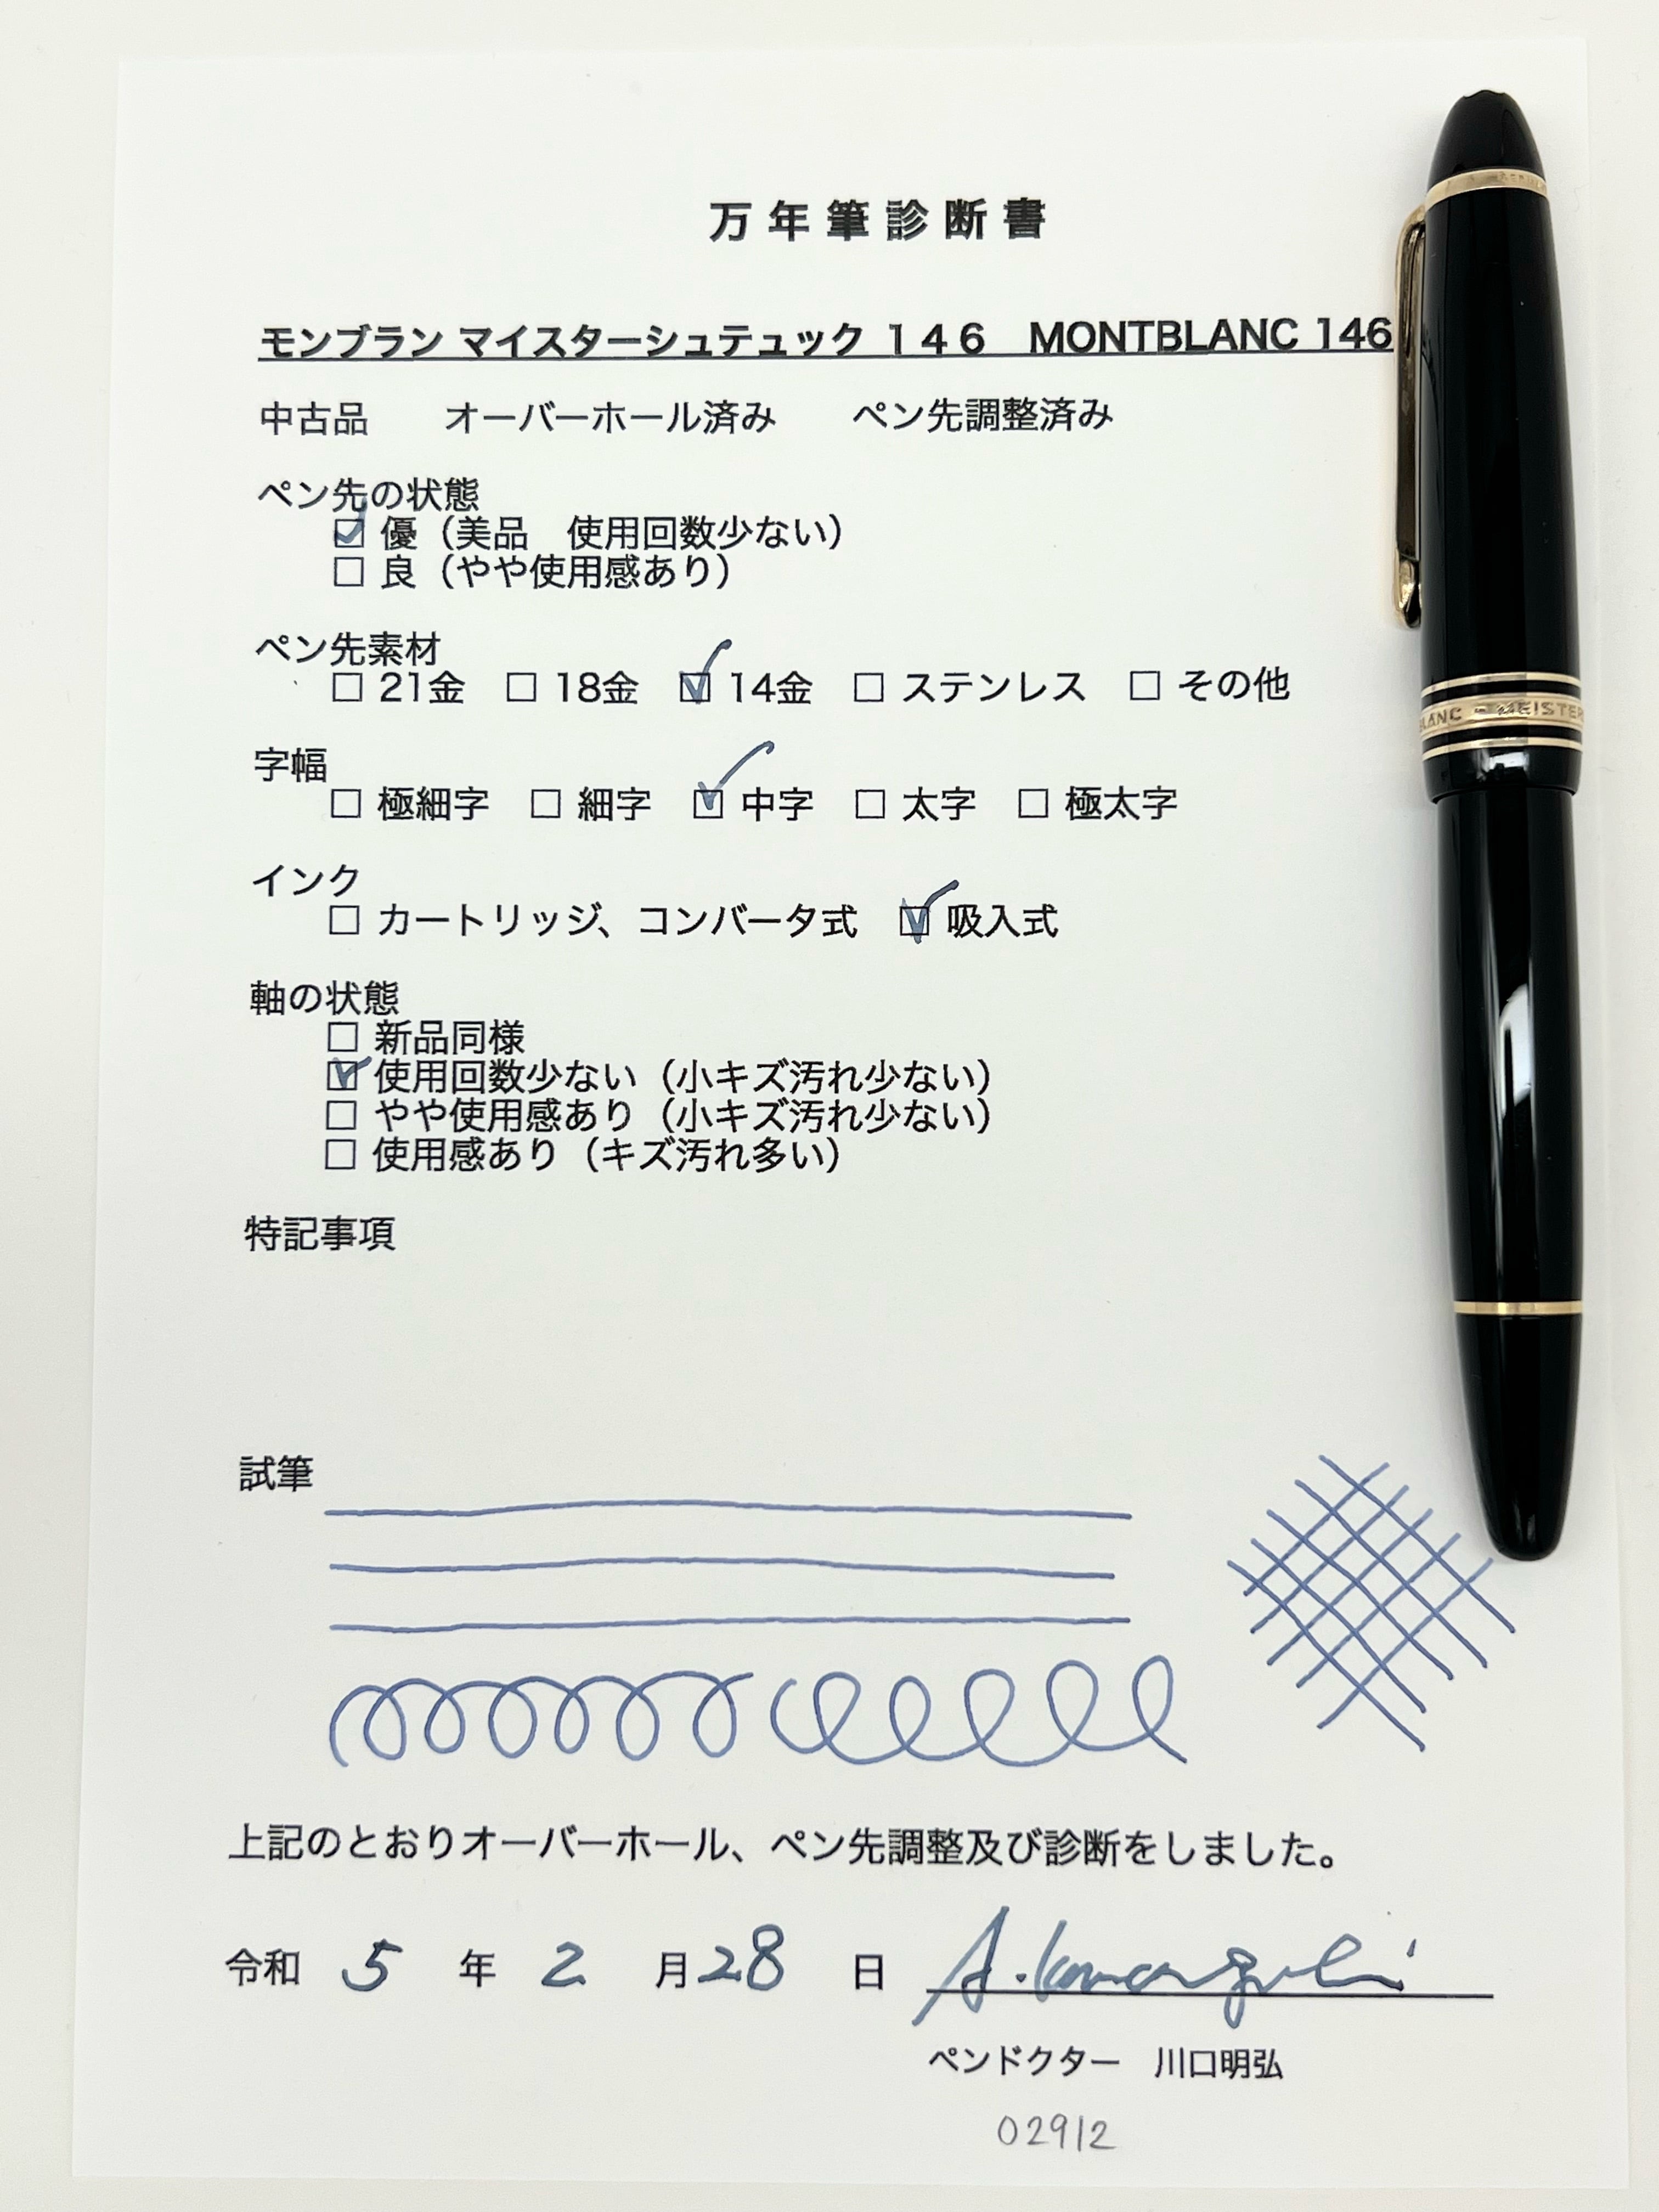 万年筆診断書
モンブラン マイスターシュテュック 146 MONTBLANC 146
中古品 オーバーホール済み ペン先調整済み
ペン先の状態
☑ 優（美品 使用回数少ない）
☐ 良（やや使用感あり）
ペン先素材
☐ 21金 ☐ 18金 ☑ 14金 ☐ ステンレス ☐ その他
字幅
☐ 極細字 ☐ 細字 ☑ 中字 ☐ 太字 ☐ 極太字
インク
☐ カートリッジ、コンバータ式 ☑ 吸入式
軸の状態
☐ 新品同様
☑ 使用回数少ない（小キズ汚れ少ない）
☐ やや使用感あり（小キズ汚れ少ない）
☐ 使用感あり（キズ汚れ多い）
特記事項
試筆
上記のとおりオーバーホール、ペン先調整及び診断をしました。
令和 5 年 2 月 28 日 A.Kawaguchi
ペンドクター 川口明弘
02912
LANC - MEISTER